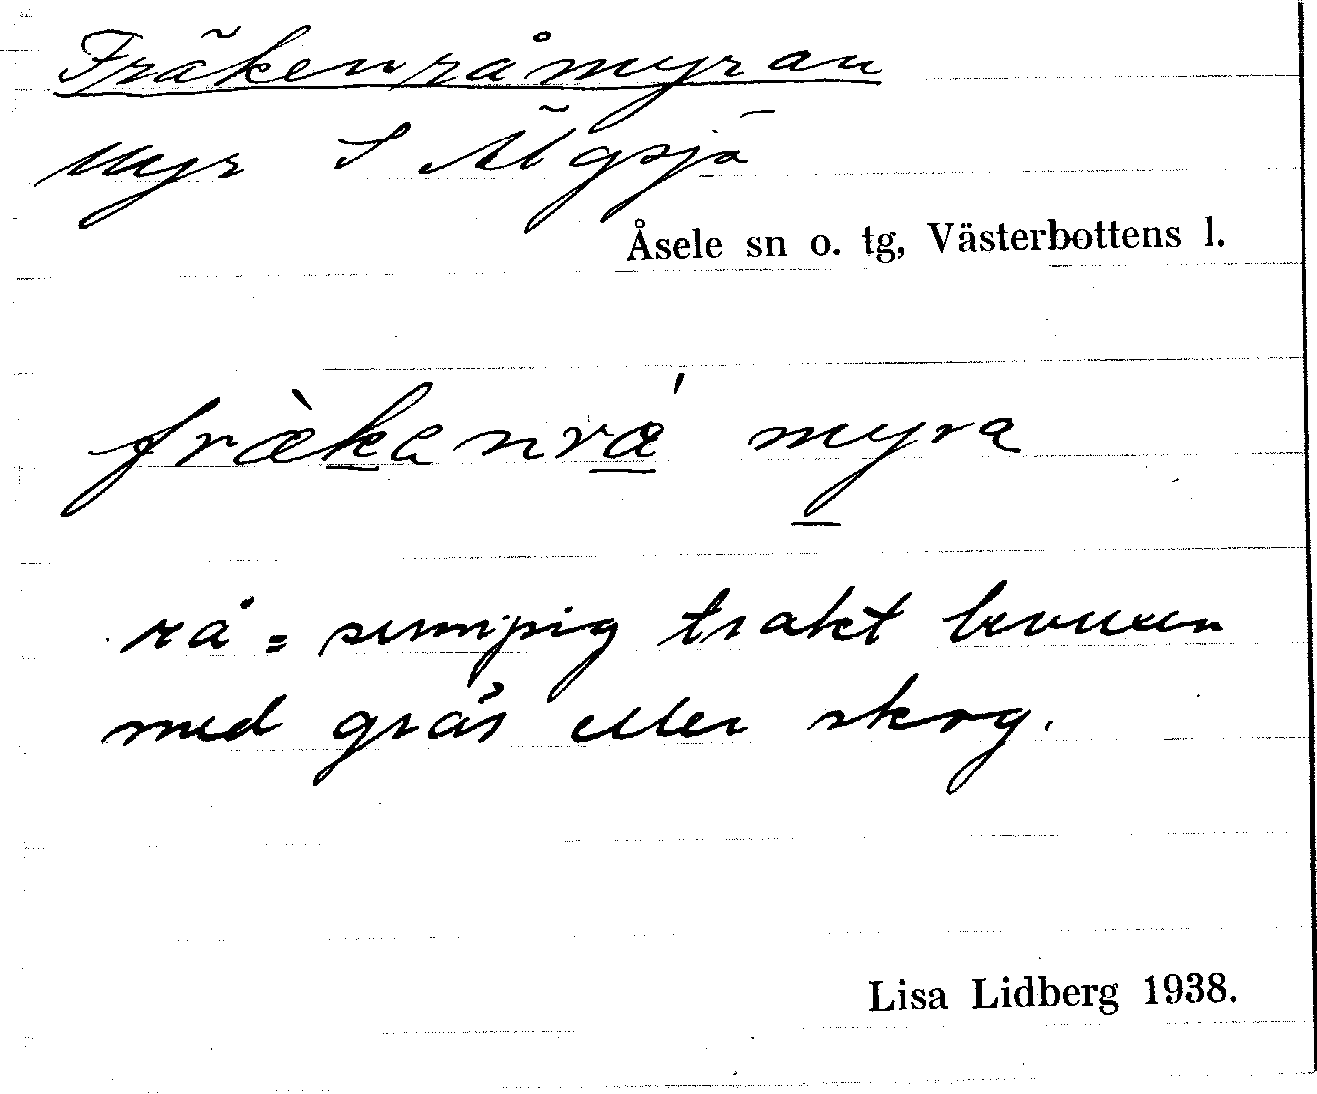 Fräkenråmyran
Myr S Älgsjö
Åsele sn o. tg, Västerbottens l.
fræ̀kanrǽ myra
rå = sumpig trakt bevuxen
med gräs eller skog.
Lisa Lidberg 1938.